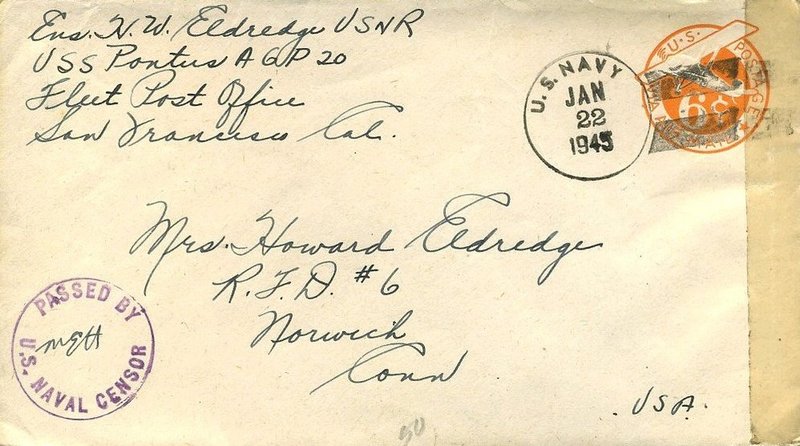 Ens. H. W. Eldredge USNR
USS Pontus AGP 20
Fleet Post Office
San Francisco Cal.
U.S. NAVY
JAN
22
1945
U.S. POSTAGE
6¢
VIA AIR MAIL
Mrs. Howard Eldredge
R.F.D. #6
Norwich
Conn
USA.
PASSED BY
MEH
U.S. NAVAL CENSOR
50